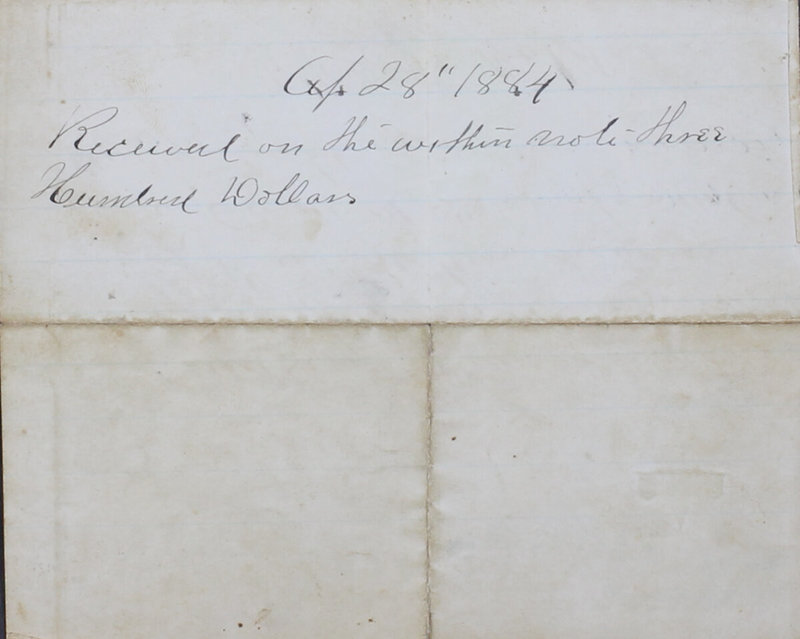 Ap. 28" 1884
Received on the within note three
Hundred Dollars